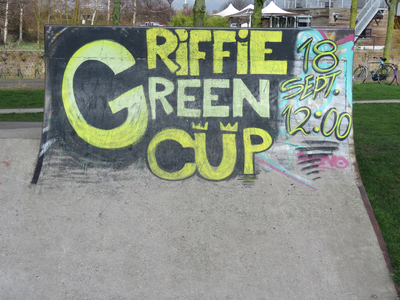 GRIFFIE
GREEN
CUP
18
SEPT.
12:00